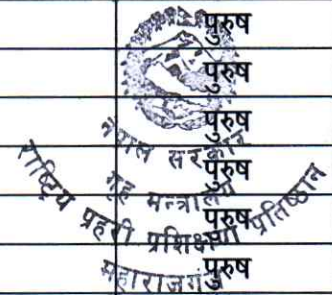 पुरुष
पुरुष
पुरुष
पुरुष
पुरुष
पुरुष
नेपाल सरकार
गृह मन्त्रालय
राष्ट्रिय प्रहरी प्रशिक्षण प्रतिष्ठान
महाराजगंज